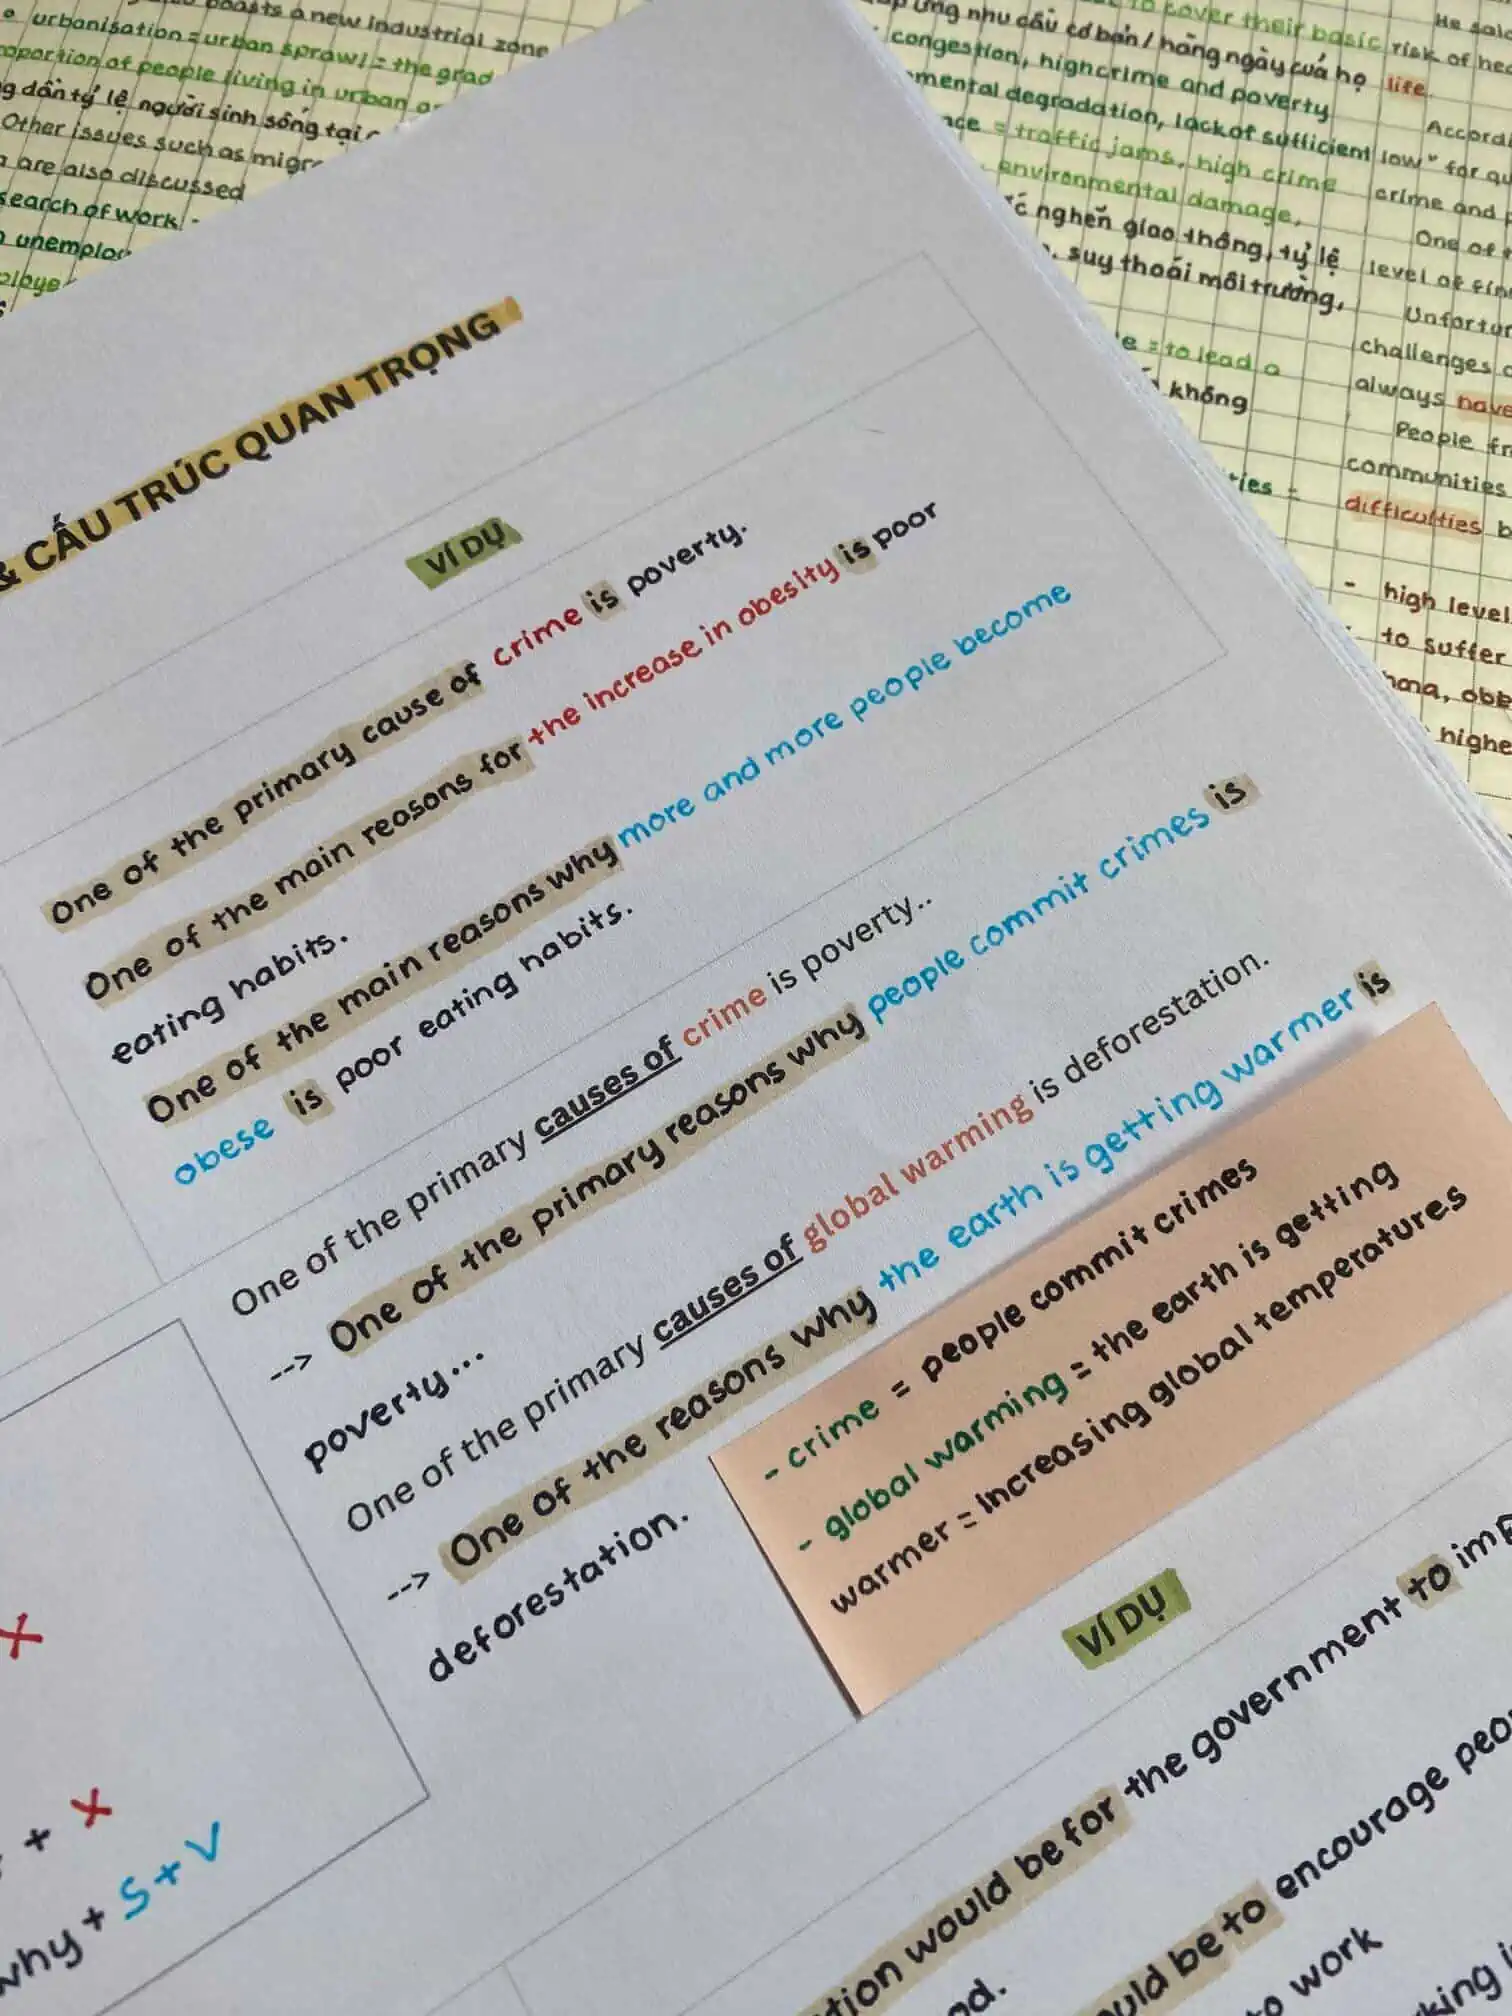 boasts a new industrial zone
urbanisation = urban sprawl = the grad
oportion of people living in urban
g dần tỷ lệ người sinh sống tại
Other issues such as migr
are also discussed
search of work
unemplo
ploye
to cover their basic
ứng nhu cầu cơ bản / hàng ngày của họ
congestion, high crime and poverty
mental degradation, lack of sufficient
nce = traffic jams, high crime
environmental damage,
ắc nghẽn giao thông, tỷ lệ
suy thoái môi trường,
e = to lead a
không
ties -
He said
risk of hea
life.
Accordi
low" for qu
crime and p
One of t
level of fin
Unfortun
challenges
always have
People fr
communities
difficulties b
- high level
- to suffer
highe
& CẤU TRÚC QUAN TRỌNG
VÍ DỤ
One of the primary cause of crime is poverty.
One of the main reasons for the increase in obesity is poor
eating habits.
One of the main reasons why more and more people become
obese is poor eating habits.
One of the primary causes of crime is poverty..
--> One of the primary reasons why people commit crimes is
poverty...
One of the primary causes of global warming is deforestation.
--> One of the reasons why the earth is getting warmer is
deforestation.
- crime = people commit crimes
- global warming = the earth is getting
warmer = increasing global temperatures
X
+ X
why + S+V
VÍ DỤ
tion would be for the government to imp
ould be to encourage peo
to work
king i